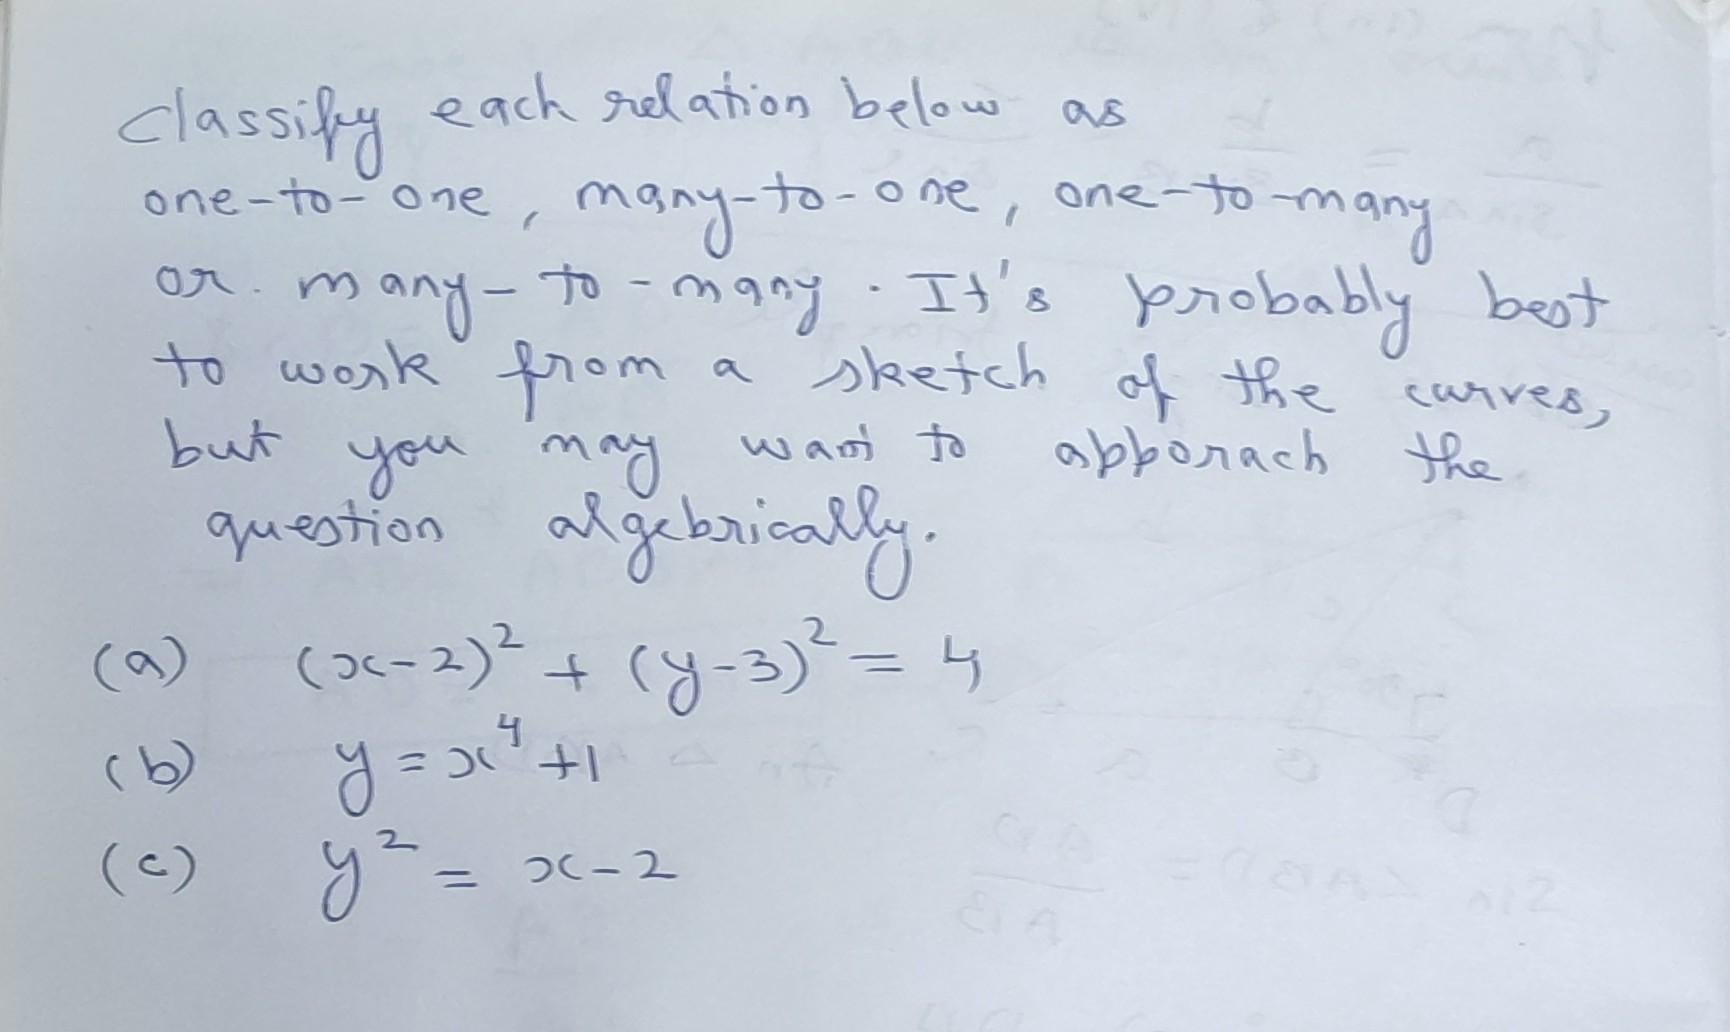 classify each relation below as
one-to-one, many-to-one, one-to-many
or many-to-many. It's probably best
to work from a sketch of the curves,
but you may want to apporach the
question algebrically.
(a) (x-2)² + (y-3)² = 4
(b) y = x⁴+1
(c) y² = x-2